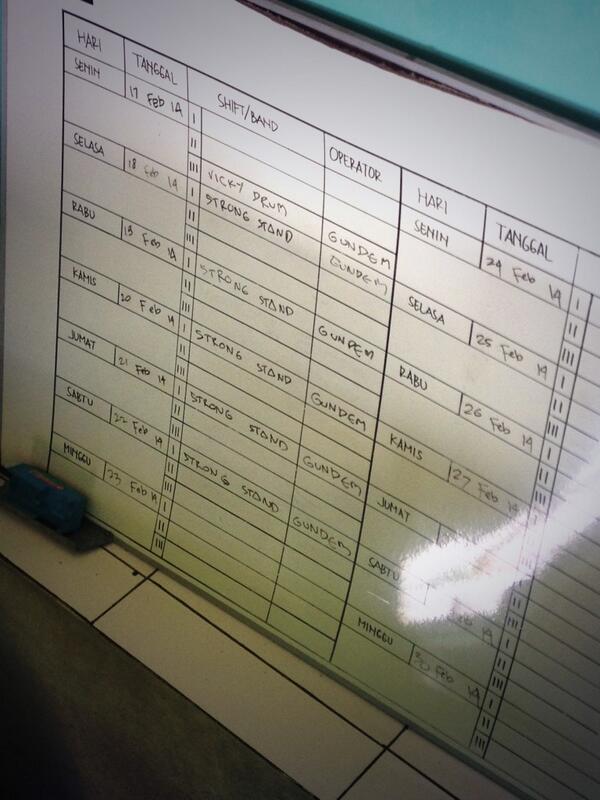 HARI TANGGAL SHIFT/BAND OPERATOR
SENIN 17 Feb 14 I
II
III VICKY DRUM GUNDEM
SELASA 18 Feb 14 I STRONG STAND GUNDEM
II
III
RABU 19 Feb 14 I STRONG STAND GUNDEM
II
III
KAMIS 20 Feb 14 I STRONG STAND GUNDEM
II
III
JUMAT 21 Feb 14 I STRONG STAND GUNDEM
II
III
SABTU 22 Feb 14 I STRONG STAND GUNDEM
II
III
MINGGU 23 Feb 14 I
II
III
HARI TANGGAL
SENIN 24 Feb 14 I
II
III
SELASA 25 Feb 14 I
II
III
RABU 26 Feb 14 I
II
III
KAMIS 27 Feb 14 I
II
JUMAT
SABTU 14 I
II
III
MINGGU 30 Feb 14 I
II
III